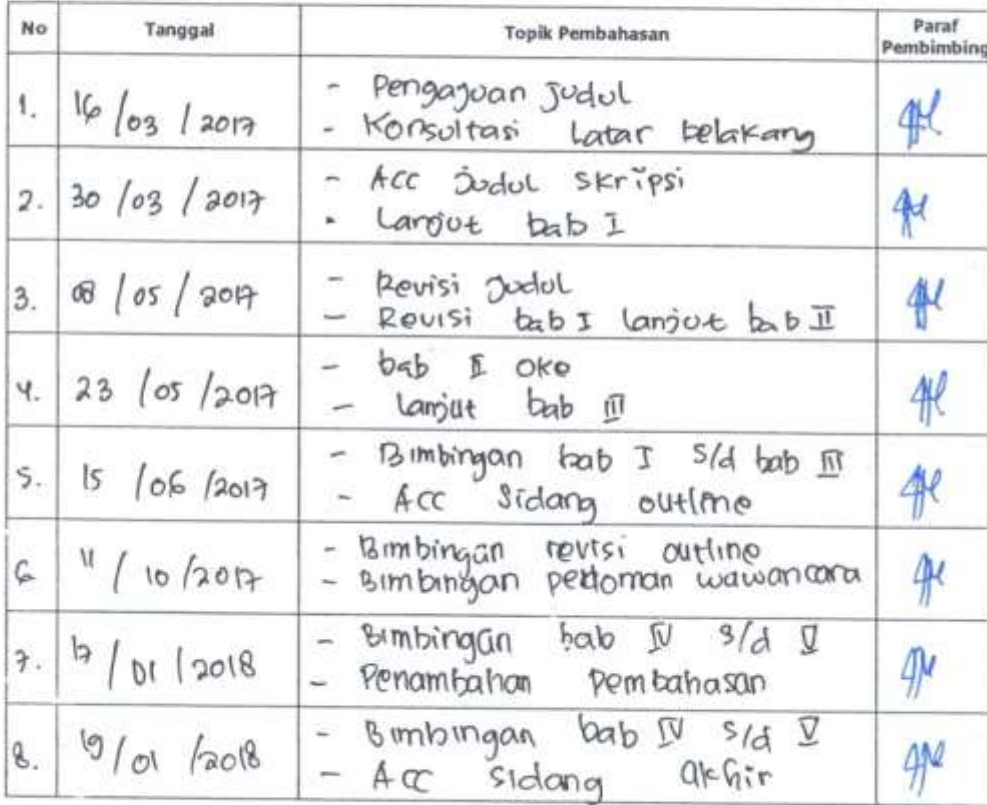 No Tanggal Topik Pembahasan Paraf
Pembimbing
1. 16/03/2017 - Pengajuan Judul
- Konsultasi Latar belakang
2. 30/03/2017 - ACC Judul Skripsi
- Lanjut bab I
3. 08/05/2017 - Revisi Judul
- Revisi bab I lanjut bab II
4. 23/05/2017 - bab II oke
- Lanjut bab III
5. 15/06/2017 - Bimbingan bab I s/d bab III
- ACC Sidang outline
6 11/10/2017 - Bimbingan revisi outline
- Bimbingan pedoman wawancara
7. 17/01/2018 - Bimbingan bab IV s/d V
- Penambahan Pembahasan
8. 19/01/2018 - Bimbingan bab IV s/d V
- ACC sidang akhir